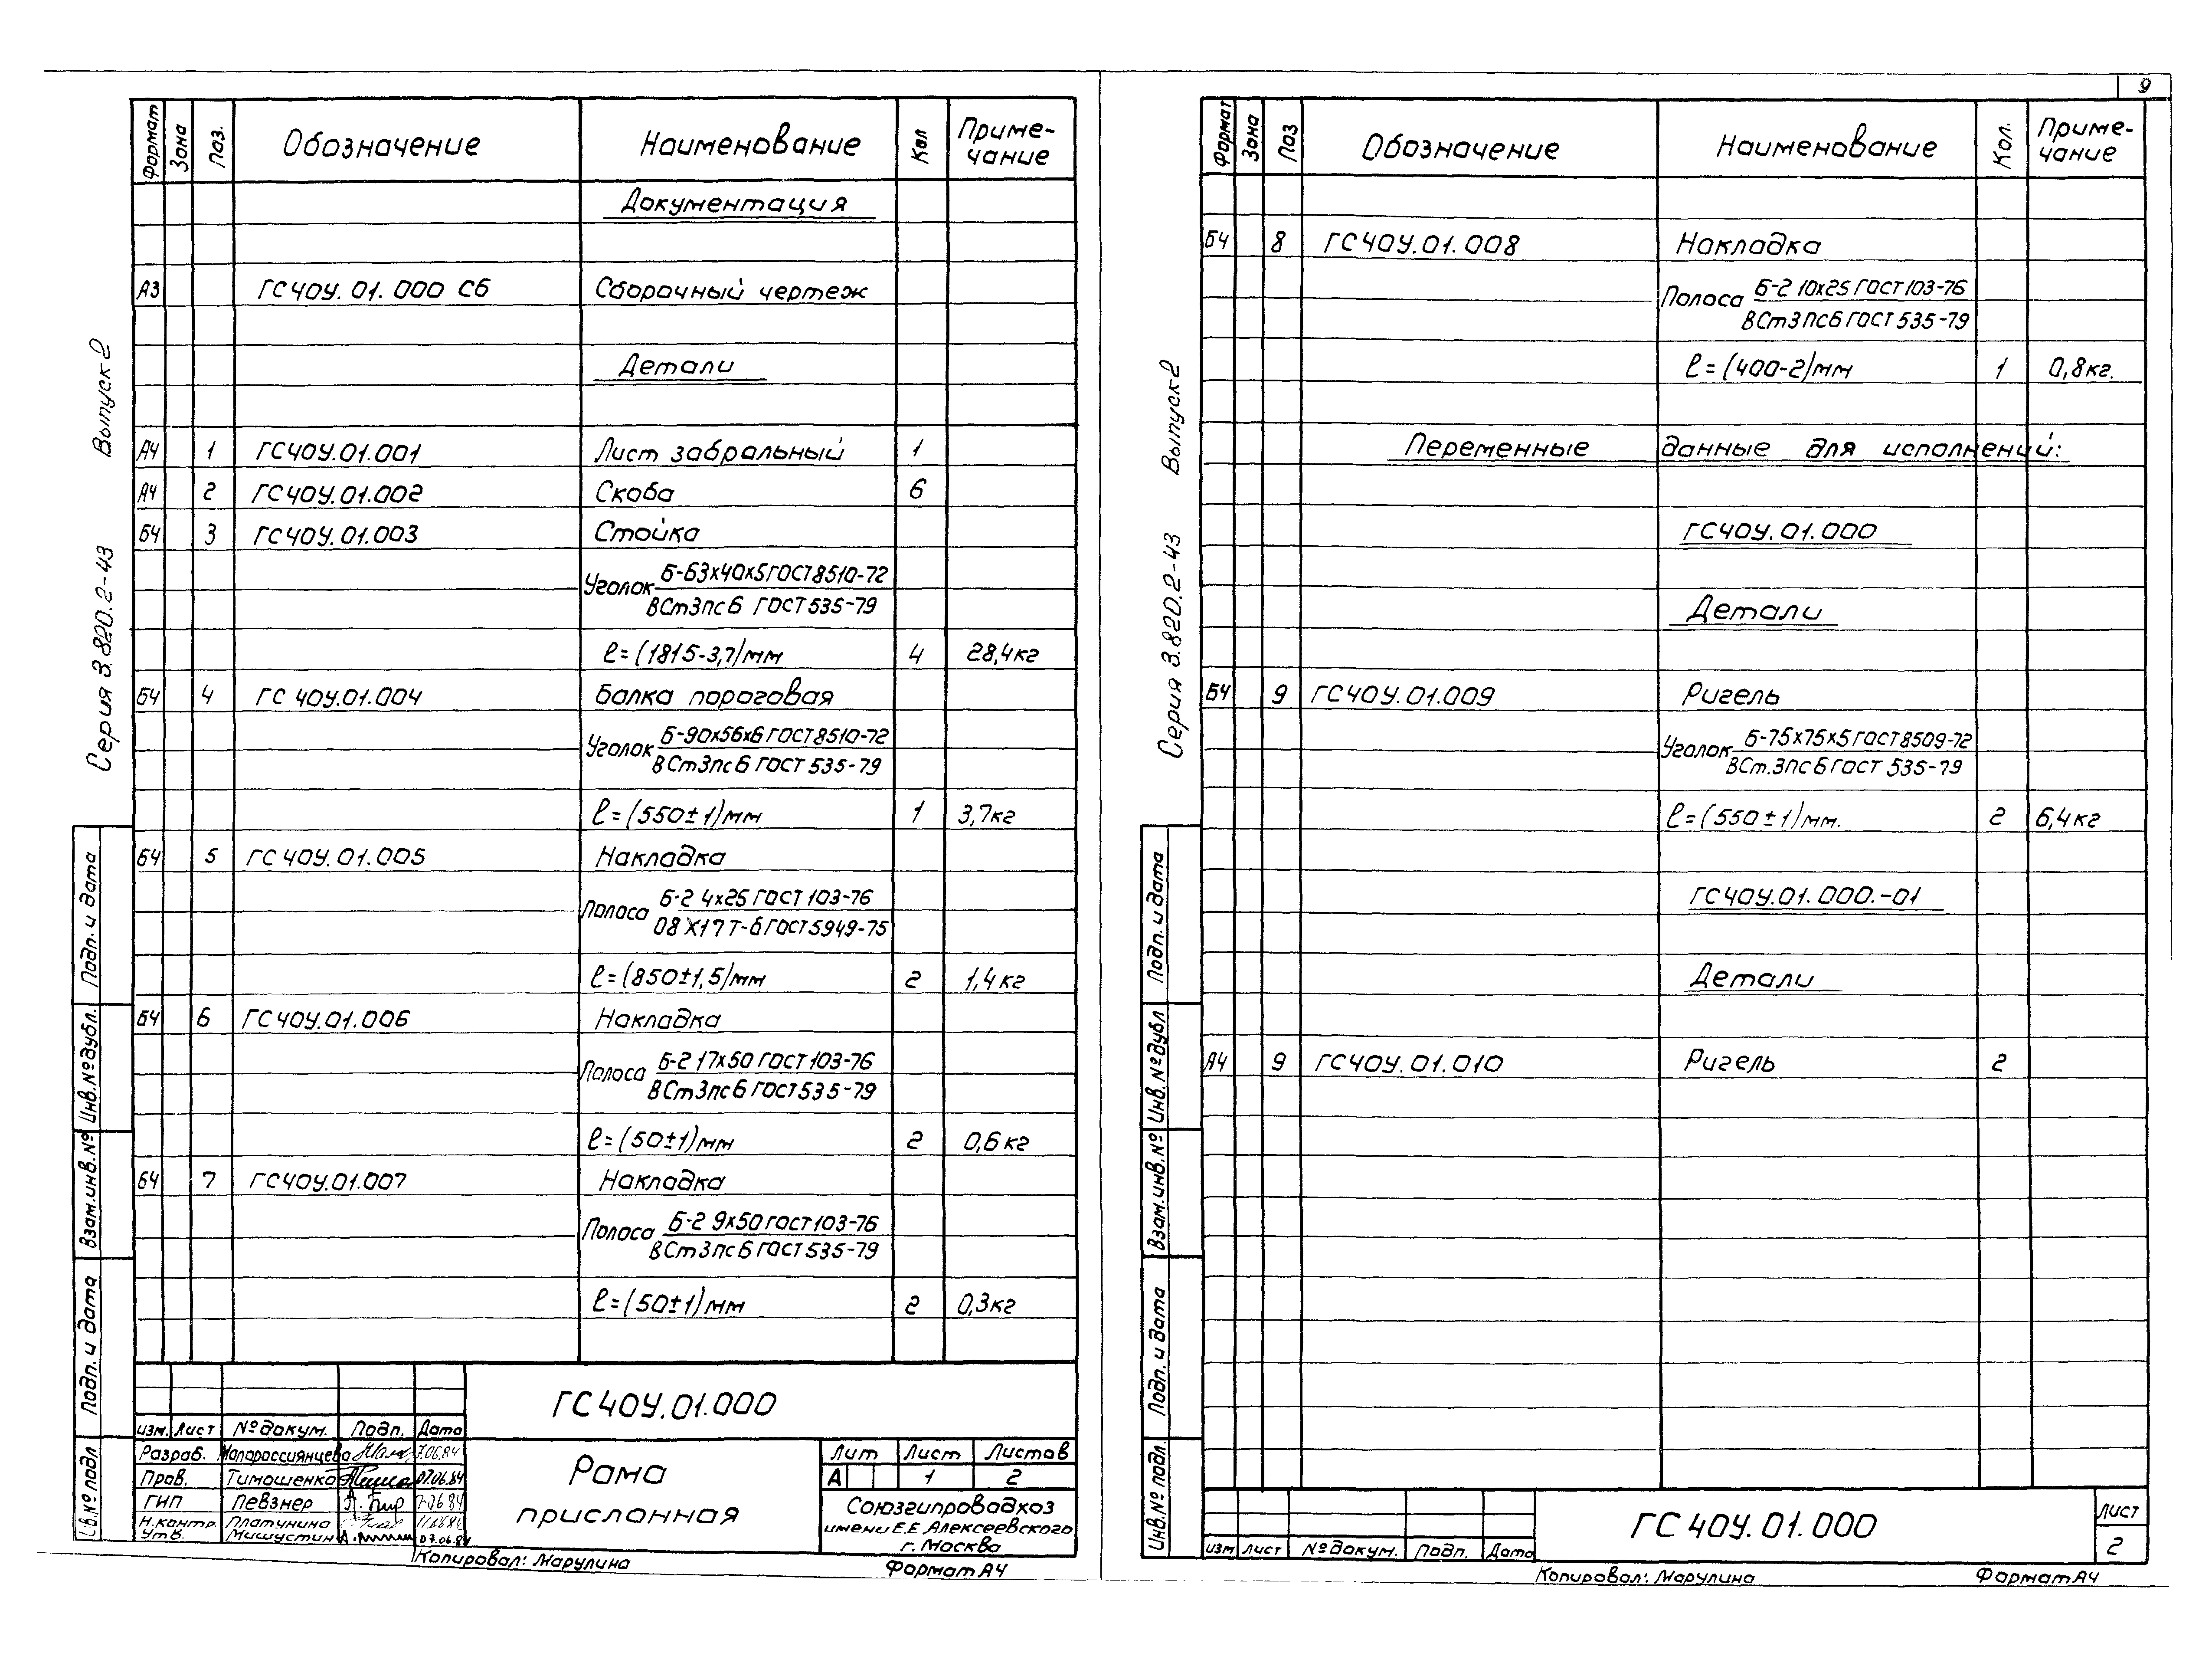 9
Формат Зона Поз. Обозначение Наименование Кол Приме-
чание
Документация
А3 ГС40У.01.000 СБ Сборочный чертеж
Детали
А4 1 ГС40У.01.001 Лист забральный 1
А4 2 ГС40У.01.002 Скоба 6
БЧ 3 ГС40У.01.003 Стойка
Уголок Б-63х40х5 ГОСТ 8510-72
ВСт3пс6 ГОСТ 535-79
ℓ=(1815-3,7)мм 4 28,4кг
БЧ 4 ГС 40У.01.004 Балка пороговая
Уголок Б-90х56х6 ГОСТ 8510-72
ВСт3пс6 ГОСТ 535-79
ℓ=(550±1)мм 1 3,7кг
БЧ 5 ГС 40У.01.005 Накладка
Полоса Б-2 4х25 ГОСТ 103-76
08Х17Т-б ГОСТ 5949-75
ℓ=(850±1,5)мм 2 1,4кг
БЧ 6 ГС40У.01.006 Накладка
Полоса Б-2 17х50 ГОСТ 103-76
ВСт3пс6 ГОСТ 535-79
ℓ=(50±1)мм 2 0,6кг
БЧ 7 ГС40У.01.007 Накладка
Полоса Б-2 9х50 ГОСТ 103-76
ВСт3пс6 ГОСТ 535-79
ℓ=(50±1)мм 2 0,3кг
Серия 3.820.2-43 Выпуск 2
Подп. и дата
Инв.№ дубл.
Взам.инв.№
Подп. и дата
Инв.№ подл
ГС 40У.01.000
изм. Лист № докум. Подп. Дата
Разраб. Малороссиянцева 7.06.84
Пров. Тимошенко 07.06.84
ГИП Певзнер 7.06.84
Н.контр. Платунина 11.06.84
Утв. Мишустин 07.06.84
Рама
прислонная
Лит Лист Листов
А 1 2
Союзгипроводхоз
имени Е.Е. Алексеевского
г. Москва
Копировал: Марулина Формат А4
Формат Зона Поз Обозначение Наименование Кол. Приме-
чание
БЧ 8 ГС40У.01.008 Накладка
Полоса Б-2 10х25 ГОСТ 103-76
ВСт3пс6 ГОСТ 535-79
ℓ=(400-2)мм 1 0,8кг.
Переменные данные для исполнений:
ГС40У.01.000
Детали
БЧ 9 ГС40У.01.009 Ригель
Уголок Б-75х75х5 ГОСТ 8509-72
ВСт.3пс6 ГОСТ 535-79
ℓ=(550±1)мм. 2 6,4кг
ГС40У.01.000.-01
Детали
А4 9 ГС40У.01.010 Ригель 2
Серия 3.820.2-43 Выпуск 2
Подп. и дата
Инв.№ дубл
Взам.инв.№
Подп. и дата
Инв.№ подл.
изм Лист № докум. Подп. Дата
ГС 40У.01.000
Лист
2
Копировал: Марулина Формат А4